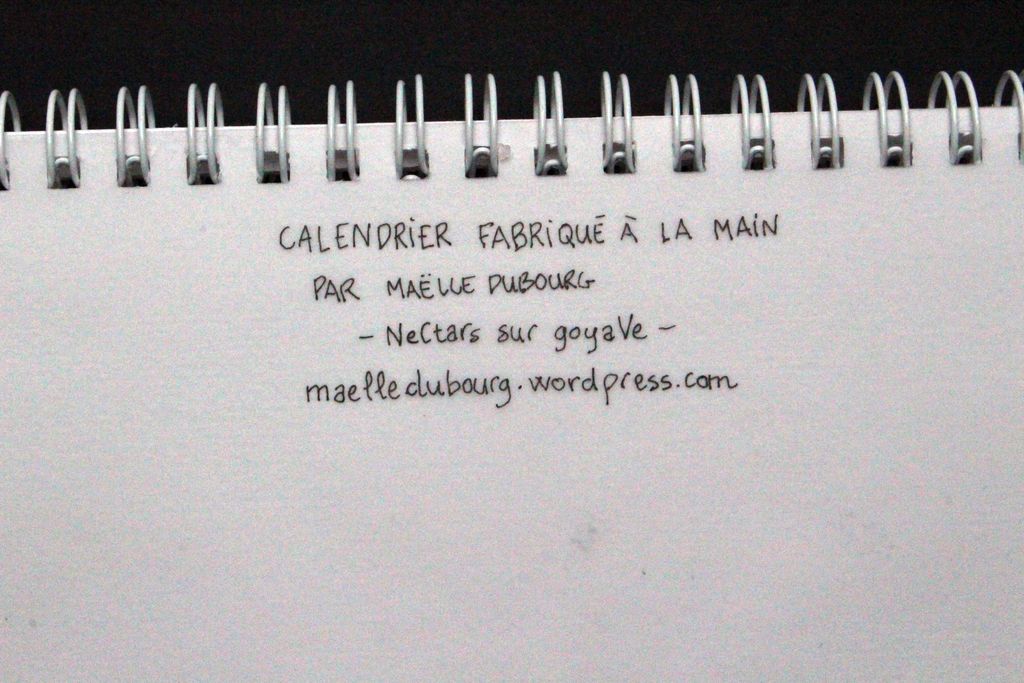 CALENDRIER FABRIQUÉ À LA MAIN
PAR MAËLLE DUBOURG
- Nectars sur goyave -
maelledubourg.wordpress.com